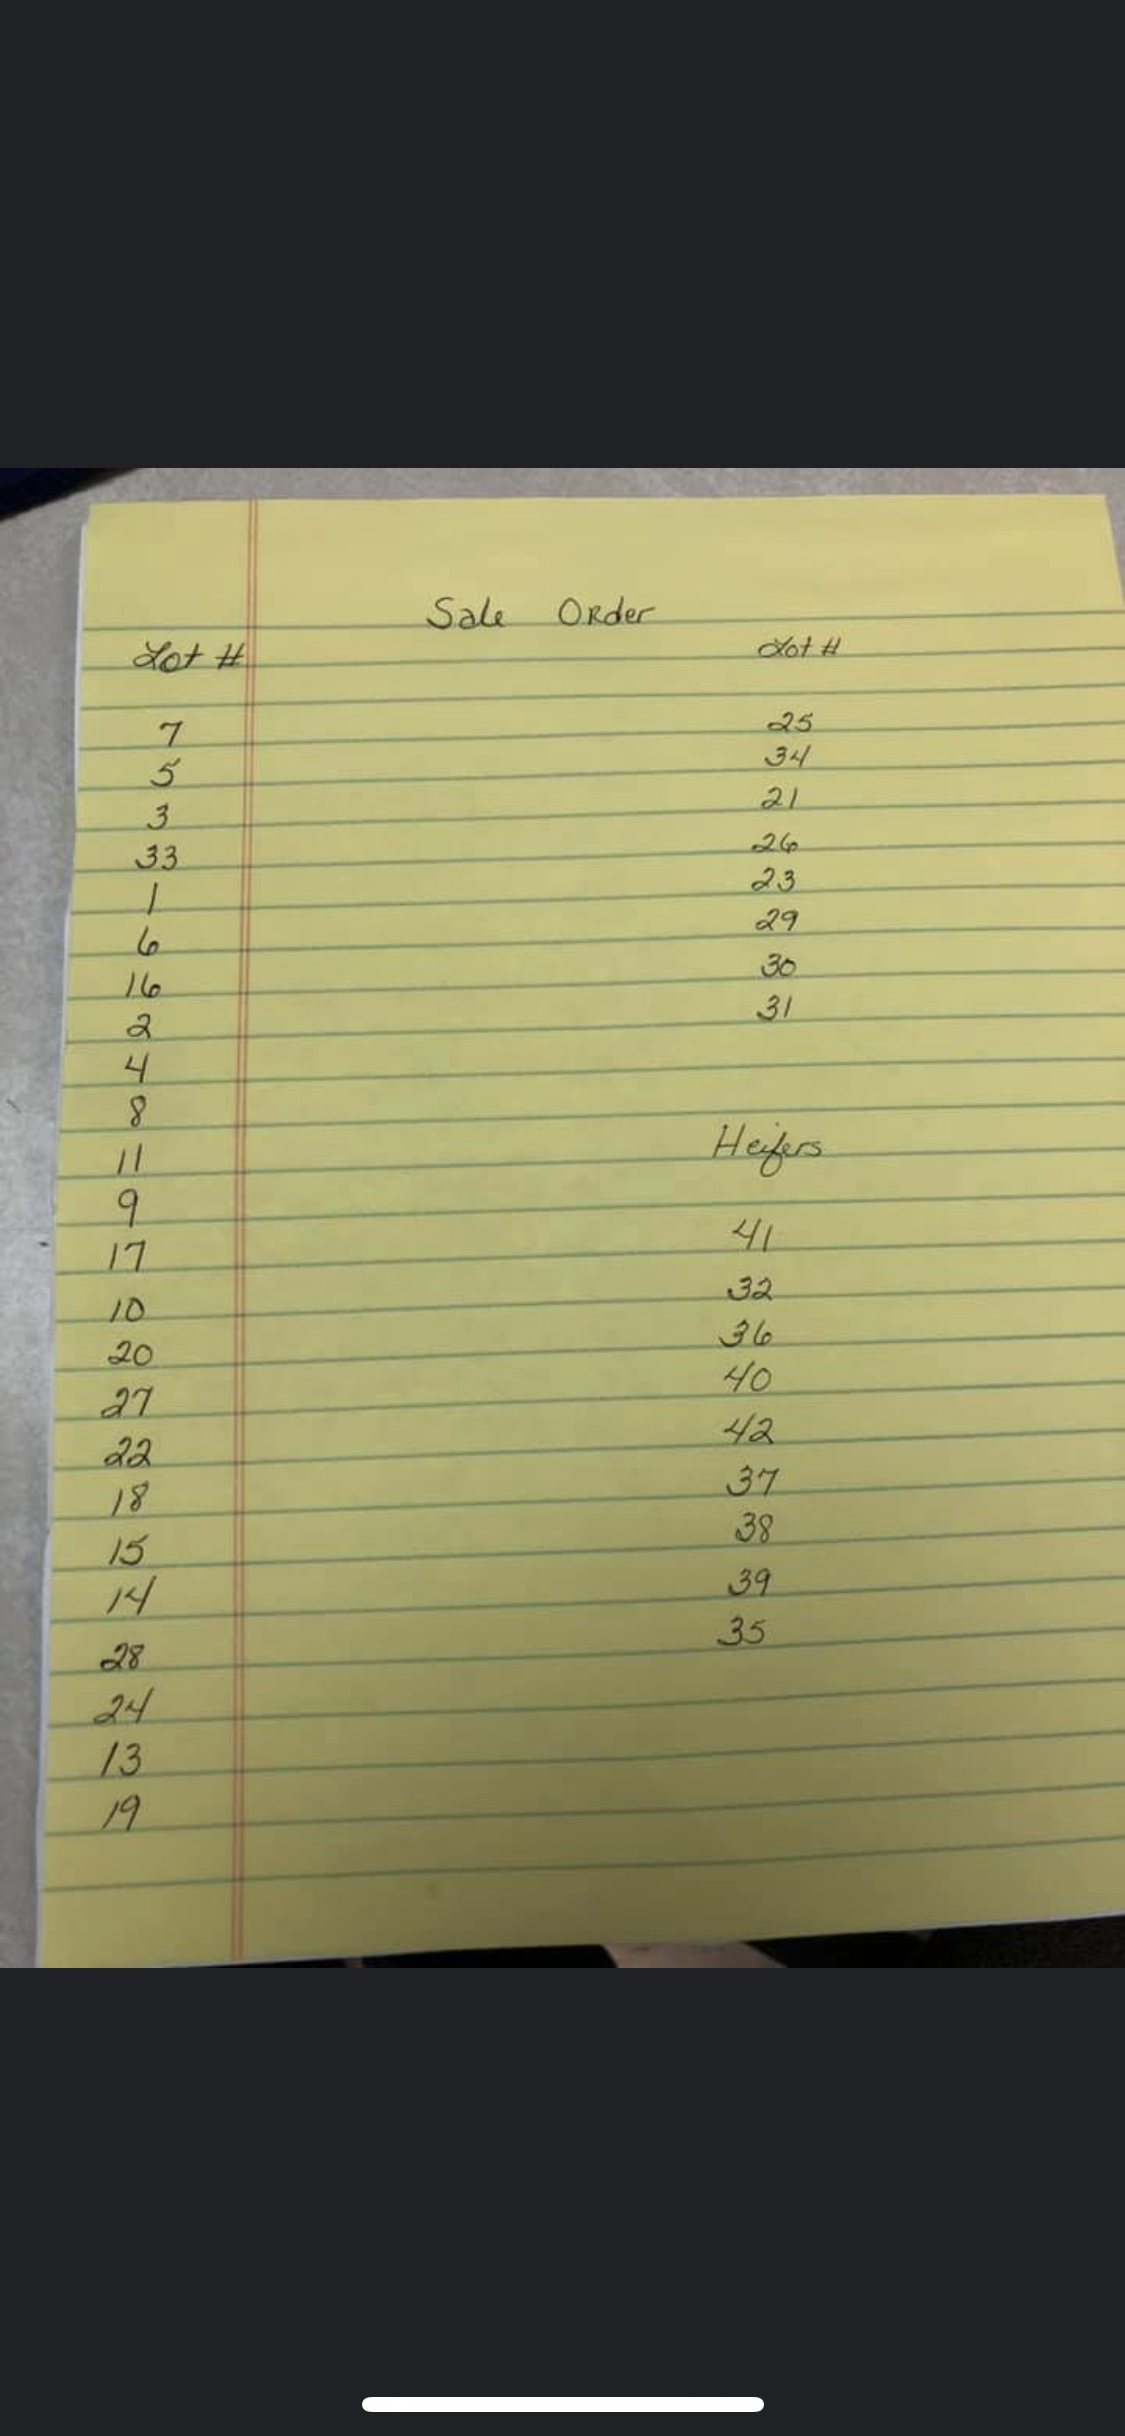 Sale Order
Lot #
7
5
3
33
1
6
16
2
4
8
11
9
17
10
20
27
22
18
15
14
28
24
13
19
Lot #
25
34
21
26
23
29
30
31
Heifers
41
32
36
40
42
37
38
39
35